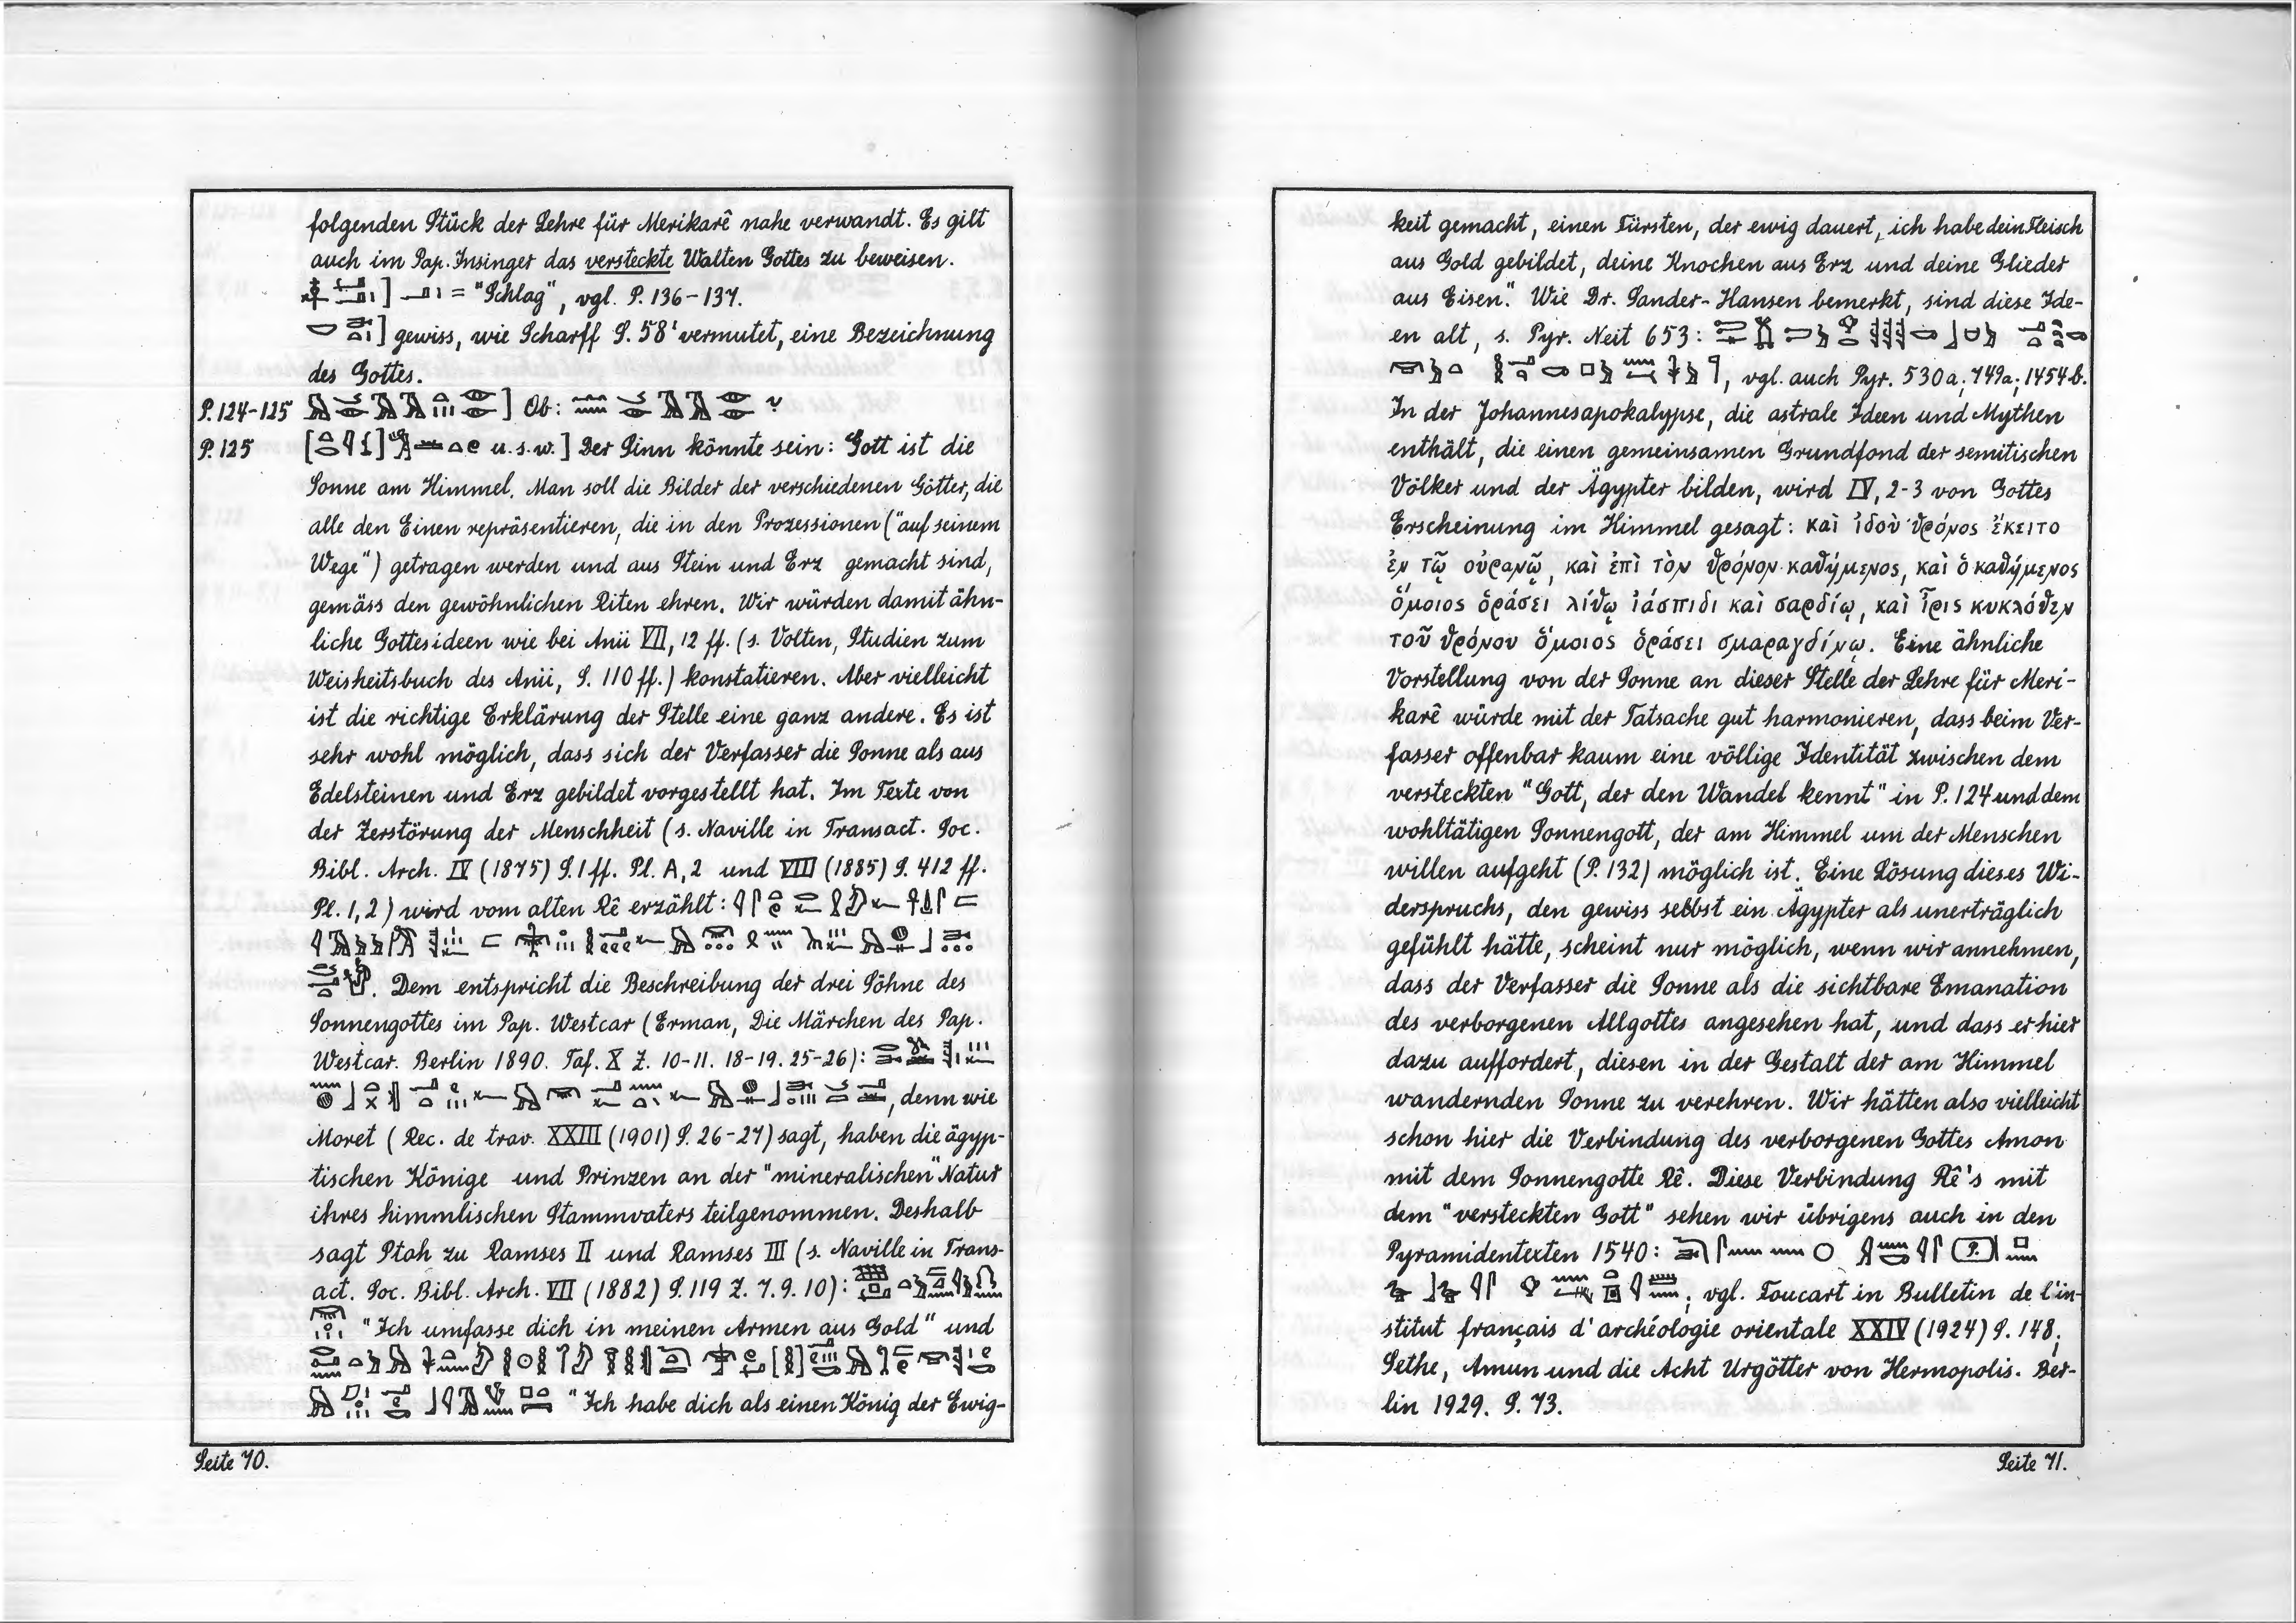 folgenden Stück der Lehre für Merikarê nahe verwandt. Es gilt
auch im Pap. Insinger das versteckte Walten Gottes zu beweisen.
] = "Schlag", vgl. P. 136-137.
] gewiss, wie Scharff S. 58¹ vermutet, eine Bezeichnung
des Gottes.
P. 124-125 ] Ob: ?
P. 125 [ ] u.s.w.] Der Sinn könnte sein: Gott ist die
Sonne am Himmel. Man soll die Bilder der verschiedenen Götter, die
alle den Einen repräsentieren, die in den Prozessionen ("auf seinem
Wege") getragen werden und aus Stein und Erz gemacht sind,
gemäss den gewöhnlichen Riten ehren. Wir würden damit ähn-
liche Gottesideen wie bei Anii VII, 12 ff. (s. Volten, Studien zum
Weisheitsbuch des Anii, S. 110 ff.) konstatieren. Aber vielleicht
ist die richtige Erklärung der Stelle eine ganz andere. Es ist
sehr wohl möglich, dass sich der Verfasser die Sonne als aus
Edelsteinen und Erz gebildet vorgestellt hat. Im Texte von
der Zerstörung der Menschheit (s. Naville in Transact. Soc.
Bibl. Arch. IV (1875) S. 1 ff. Pl. A, 2 und VIII (1885) S. 412 ff.
Pl. 1, 2) wird vom alten Rê erzählt:
. Dem entspricht die Beschreibung der drei Söhne des
Sonnengottes im Pap. Westcar (Erman, Die Märchen des Pap.
Westcar. Berlin 1890. Taf. X Z. 10-11. 18-19. 25-26):
, denn wie
Moret (Rec. de trav. XXIII (1901) S. 26-27) sagt, haben die ägyp-
tischen Könige und Prinzen an der "mineralischen" Natur
ihres himmlischen Stammvaters teilgenommen. Deshalb
sagt Ptah zu Ramses II und Ramses III (s. Naville in Trans-
act. Soc. Bibl. Arch. VII (1882) S. 119 Z. 7. 9. 10):
"Ich umfasse dich in meinen Armen aus Gold" und
"Ich habe dich als einen König der Ewig-
Seite 70.
keit gemacht, einen Fürsten, der ewig dauert, ich habe dein Fleisch
aus Gold gebildet, deine Knochen aus Erz und deine Glieder
aus Eisen." Wie Dr. Sander-Hansen bemerkt, sind diese Ide-
en alt, s. Pyr. Neit 653:
, vgl. auch Pyr. 530a; 749a; 1454b.
In der Johannesapokalypse, die astrale Ideen und Mythen
enthält, die einen gemeinsamen Grundfond der semitischen
Völker und der Ägypter bilden, wird IV, 2-3 von Gottes
Erscheinung im Himmel gesagt: καὶ ἰδοὺ θρόνος ἔκειτο
ἐν τῷ οὐρανῷ, καὶ ἐπὶ τὸν θρόνον καθήμενος, καὶ ὁ καθήμενος
ὅμοιος ὁράσει λίθῳ ἰάσπιδι καὶ σαρδίῳ, καὶ ἶρις κυκλόθεν
τοῦ θρόνου ὅμοιος ὁράσει σμαραγδίνῳ. Eine ähnliche
Vorstellung von der Sonne an dieser Stelle der Lehre für Meri-
karê würde mit der Tatsache gut harmonieren, dass beim Ver-
fasser offenbar kaum eine völlige Identität zwischen dem
versteckten "Gott, der den Wandel kennt" in P. 124 und dem
wohltätigen Sonnengott, der am Himmel um der Menschen
willen aufgeht (P. 132) möglich ist. Eine Lösung dieses Wi-
derspruchs, den gewiss selbst ein Ägypter als unerträglich
gefühlt hätte, scheint nur möglich, wenn wir annehmen,
dass der Verfasser die Sonne als die sichtbare Emanation
des verborgenen Allgottes angesehen hat, und dass er hier
dazu auffordert, diesen in der Gestalt der am Himmel
wandernden Sonne zu verehren. Wir hätten also vielleicht
schon hier die Verbindung des verborgenen Gottes Amon
mit dem Sonnengotte Rê. Diese Verbindung Rê's mit
dem "versteckten Gott" sehen wir übrigens auch in den
Pyramidentexten 1540:
; vgl. Foucart in Bulletin de l'in-
stitut français d'archéologie orientale XXIV (1924) S. 148;
Sethe, Amun und die Acht Urgötter von Hermopolis. Ber-
lin 1929. S. 73.
Seite 71.